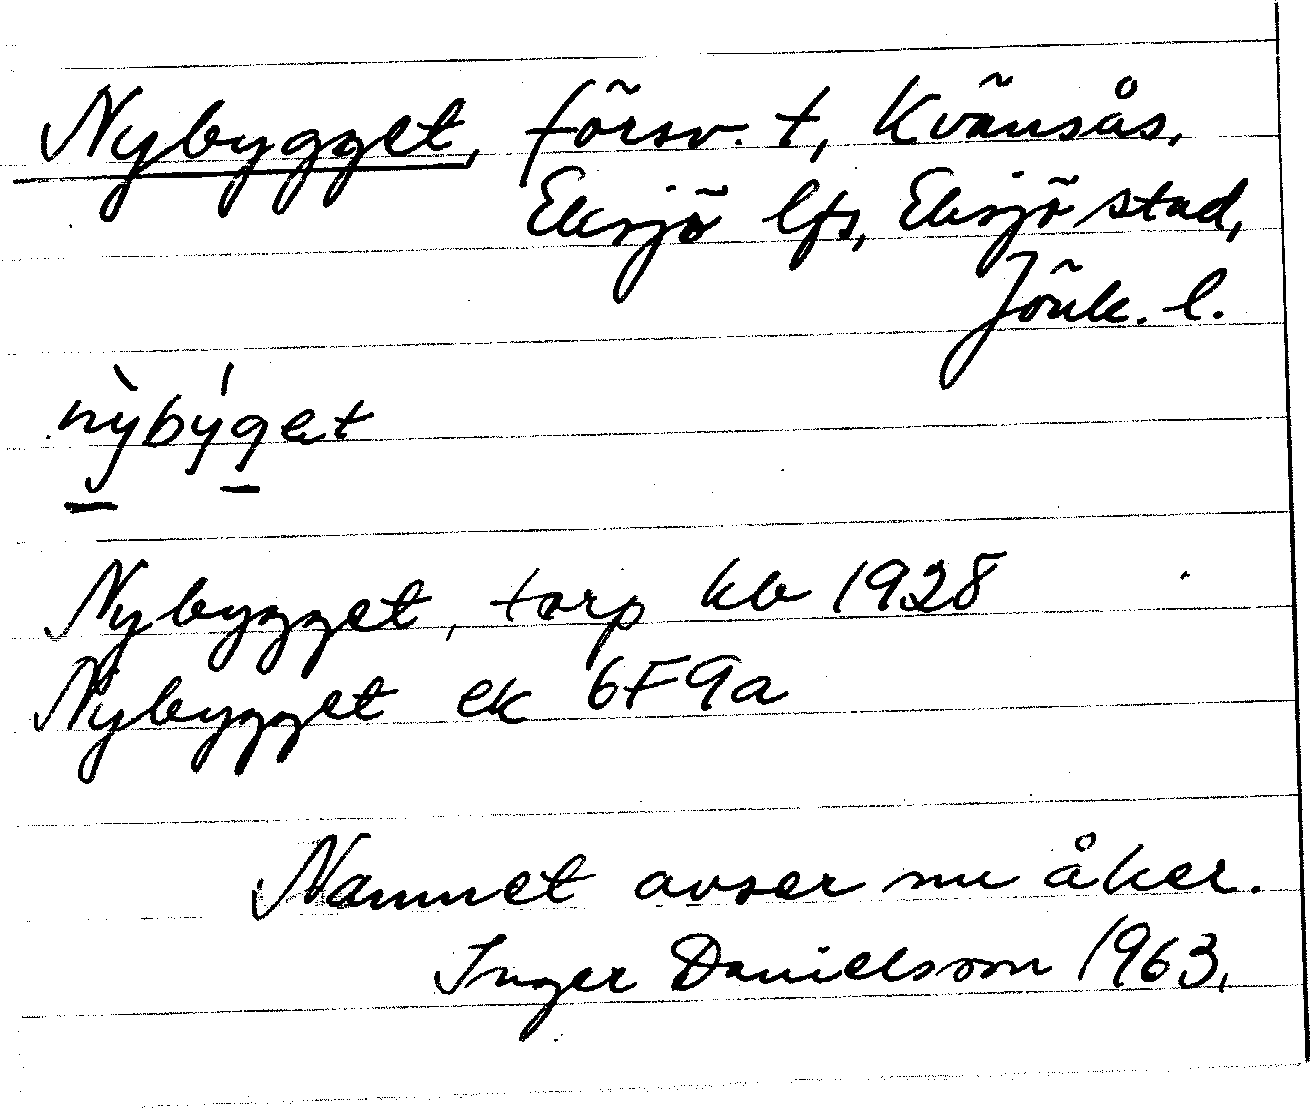 Nybygget, försv. t, Kvänsås,
Eksjö lfs, Eksjö stad,
Jönk. l.
nỳbýget
Nybygget, torp kb 1928
Nybygget ek 6F9a
Namnet avser nu åker.
Inger Danielsson 1963.